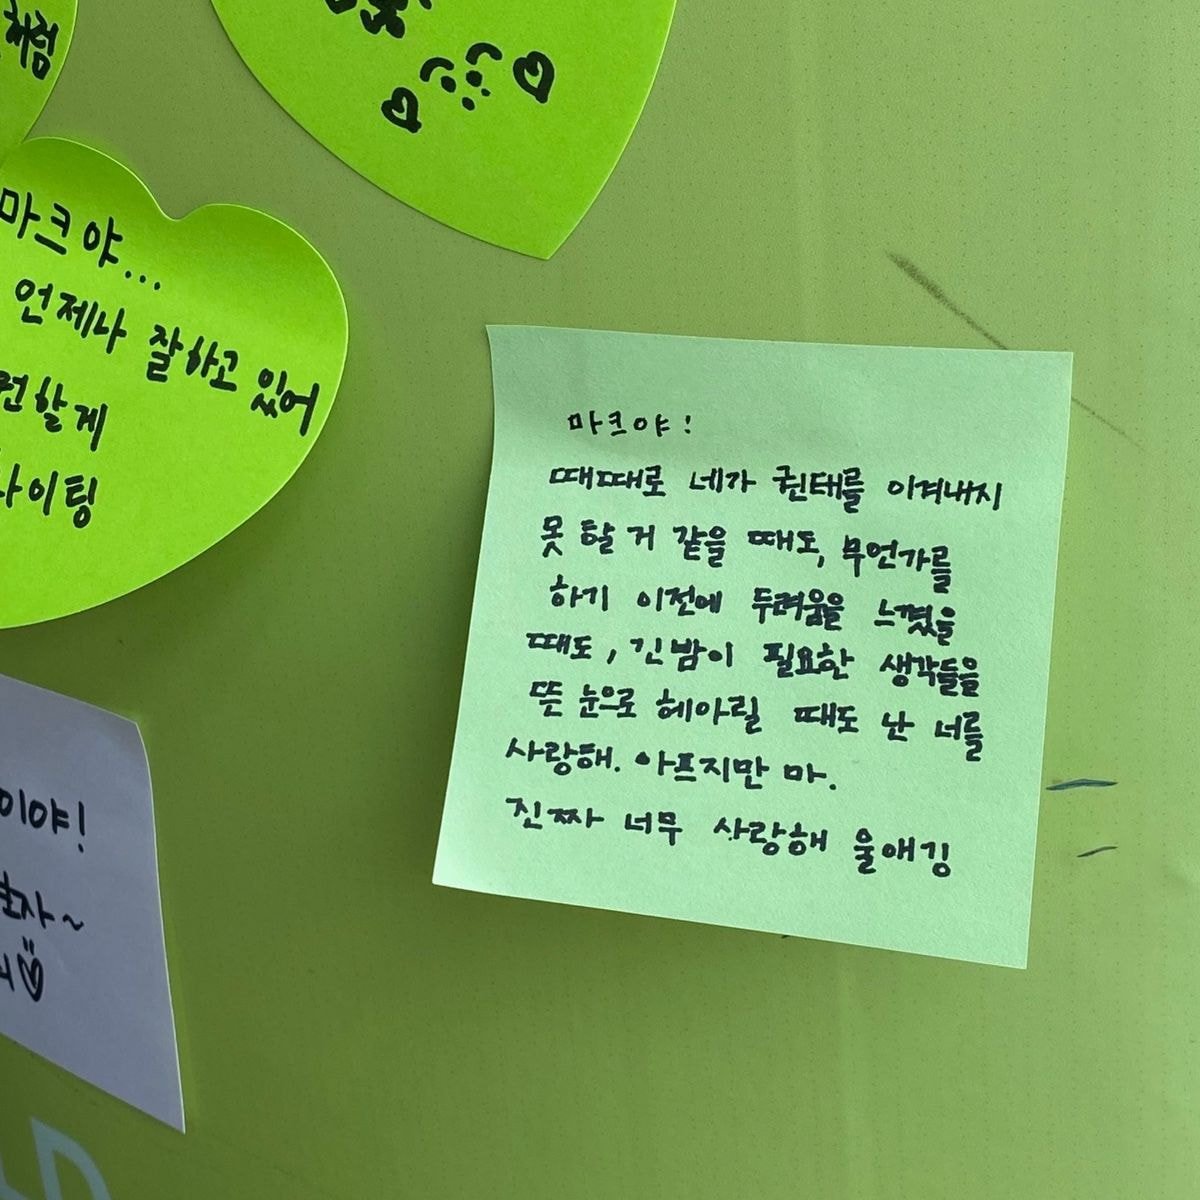 처럼
마크야...
언제나 잘하고 있어
원할게
파이팅
마크야!
때때로 네가 권태를 이겨내지
못 할 거 같을 때도, 무언가를
하기 이전에 두려움을 느꼈을
때도, 긴밤이 필요한 생각들을
뜬 눈으로 헤아릴 때도 난 너를
사랑해. 아프지만 마.
진짜 너무 사랑해 울애깅
이야!
자~